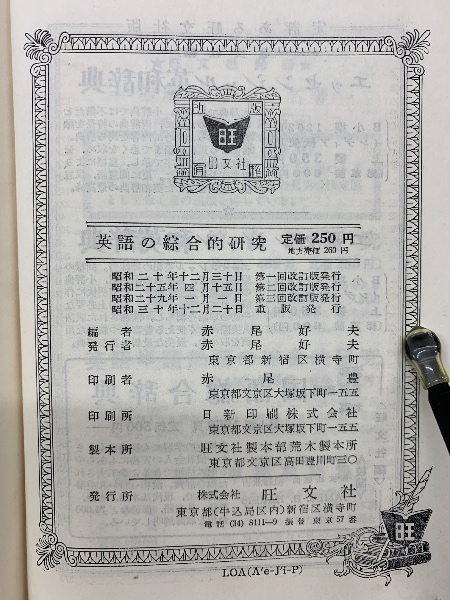 旺
旺文社
英語の綜合的研究 定価 250 円
地方売価 260 円
昭和二十年十二月三十日 第一回改訂版発行
昭和二十五年四月十五日 第二回改訂版発行
昭和二十九年一月一日 第三回改訂版発行
昭和三十年十二月二十日 重版発行
編者 赤尾好夫
発行者 赤尾好夫
東京都新宿区横寺町
印刷者 赤尾豊
東京都文京区大塚坂下町一五五
印刷所 日新印刷株式会社
東京都文京区大塚坂下町一五五
製本所 旺文社製本部荒木製本所
東京都文京区高田豊川町三〇
発行所 株式会社 旺文社
東京都(牛込局区内)新宿区横寺町
電話 (34) 8111—9 振替東京 57 番
旺
LOA(A'e-J'i-P)